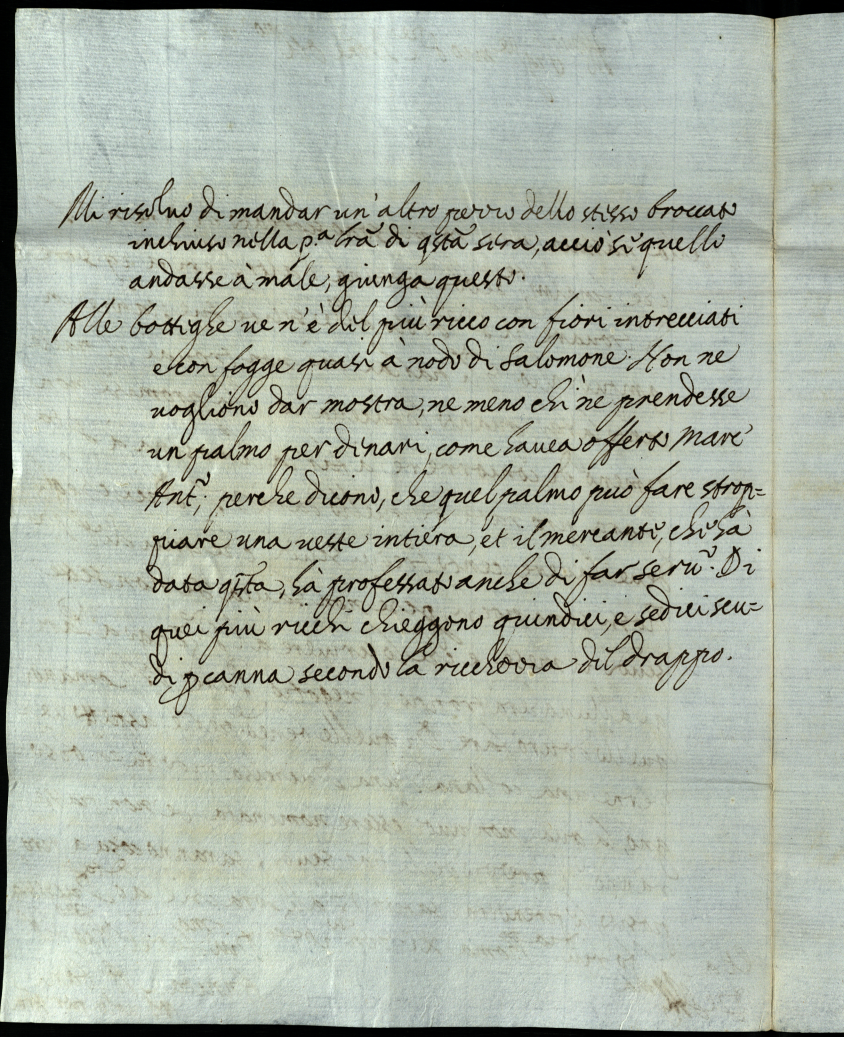 Mi risoluo di mandar un'altro pezzo dello stesso broccato
inchiuso nella p.ª lrã di qstã sera, acciò sè quello
andasse à male, giunga questo.
Alle bottighe ue n'è del più ricco con fiori intrecciati
e con fogge quasi à nodo di Salomone. Non ne
uogliono dar mostra, ne meno chi ne prendesse
un palmo per dinari, come hauea offerto Marc'
Ant.º; perche dicono, che quel palmo può fare strop=
piare una ueste intiera, et il mercante, che hà
data qstã, hà professato anche di far seru.º. Di
quei più ricchi chieggono quindici, e sedici scu=
di p canna secondo la ricchezza dil drappo.